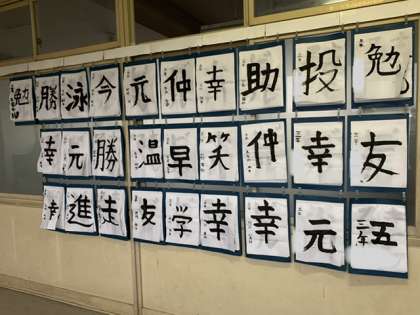 勉 勝 泳 今 元 仲 幸 助 投 勉
幸 元 勝 温 早 笑 仲 幸 友
幸 進 走 友 学 幸 幸 元 五